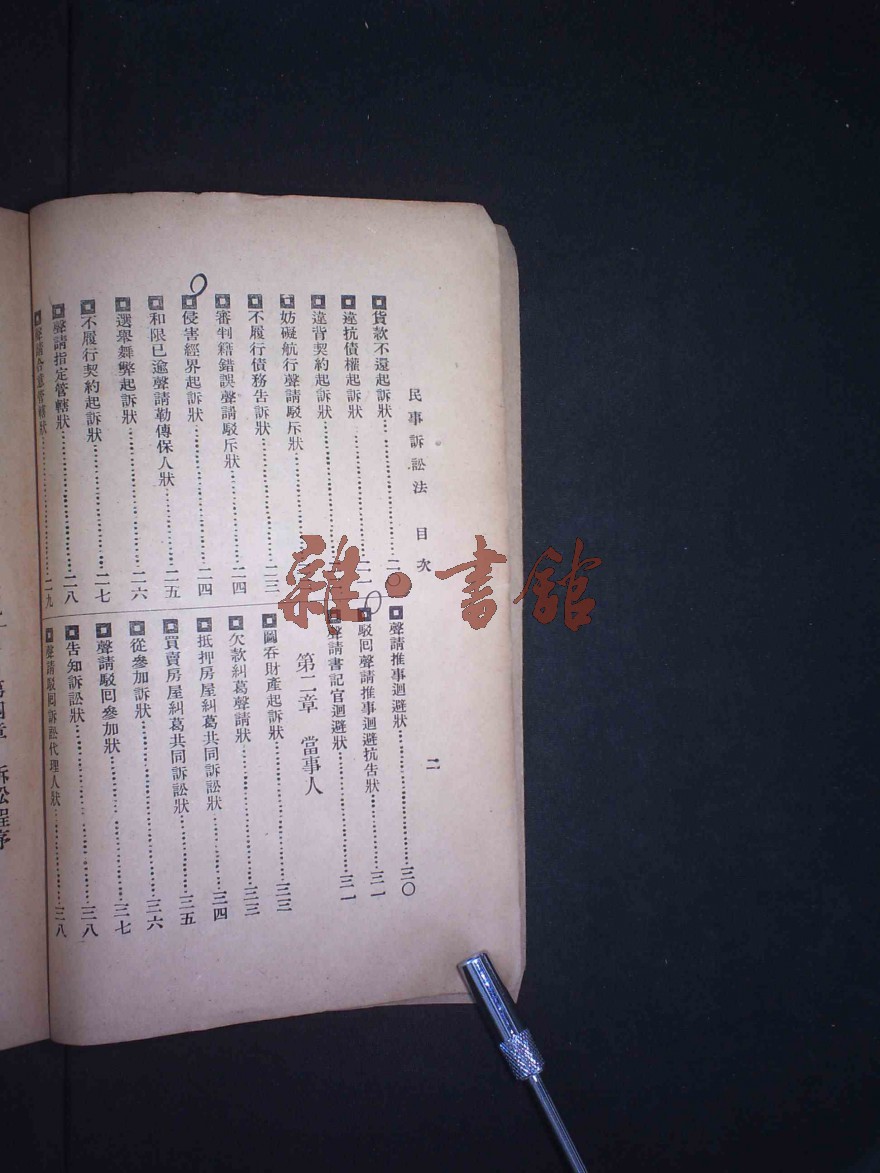 民事訴訟法 目次 二
貨款不還起訴狀……………二〇
違抗債權起訴狀……………二一
違背契約起訴狀……………
妨礙航行聲請駁斥狀……………
不履行債務告訴狀……………二三
審判籍錯誤聲請駁斥狀……………二四
侵害經界起訴狀……………二四
和限已逾聲請勒傳保人狀……………二五
選舉舞弊起訴狀……………二六
不履行契約起訴狀……………二七
聲請指定管轄狀……………二八
聲請合意管轄狀……………二九
聲請推事迴避狀……………三〇
駁回聲請推事迴避抗告狀……………三一
聲請書記官迴避狀……………三一
第二章 當事人
圖吞財產起訴狀……………三三
欠款糾葛聲請狀……………三三
抵押房屋糾葛共同訴訟狀……………三四
買賣房屋糾葛共同訴訟狀……………三五
從參加訴狀……………三六
聲請駁回參加狀……………三七
告知訴訟狀……………三八
聲請駁回訴訟代理人狀……………三八
第四章 訴訟程序
雜·書館